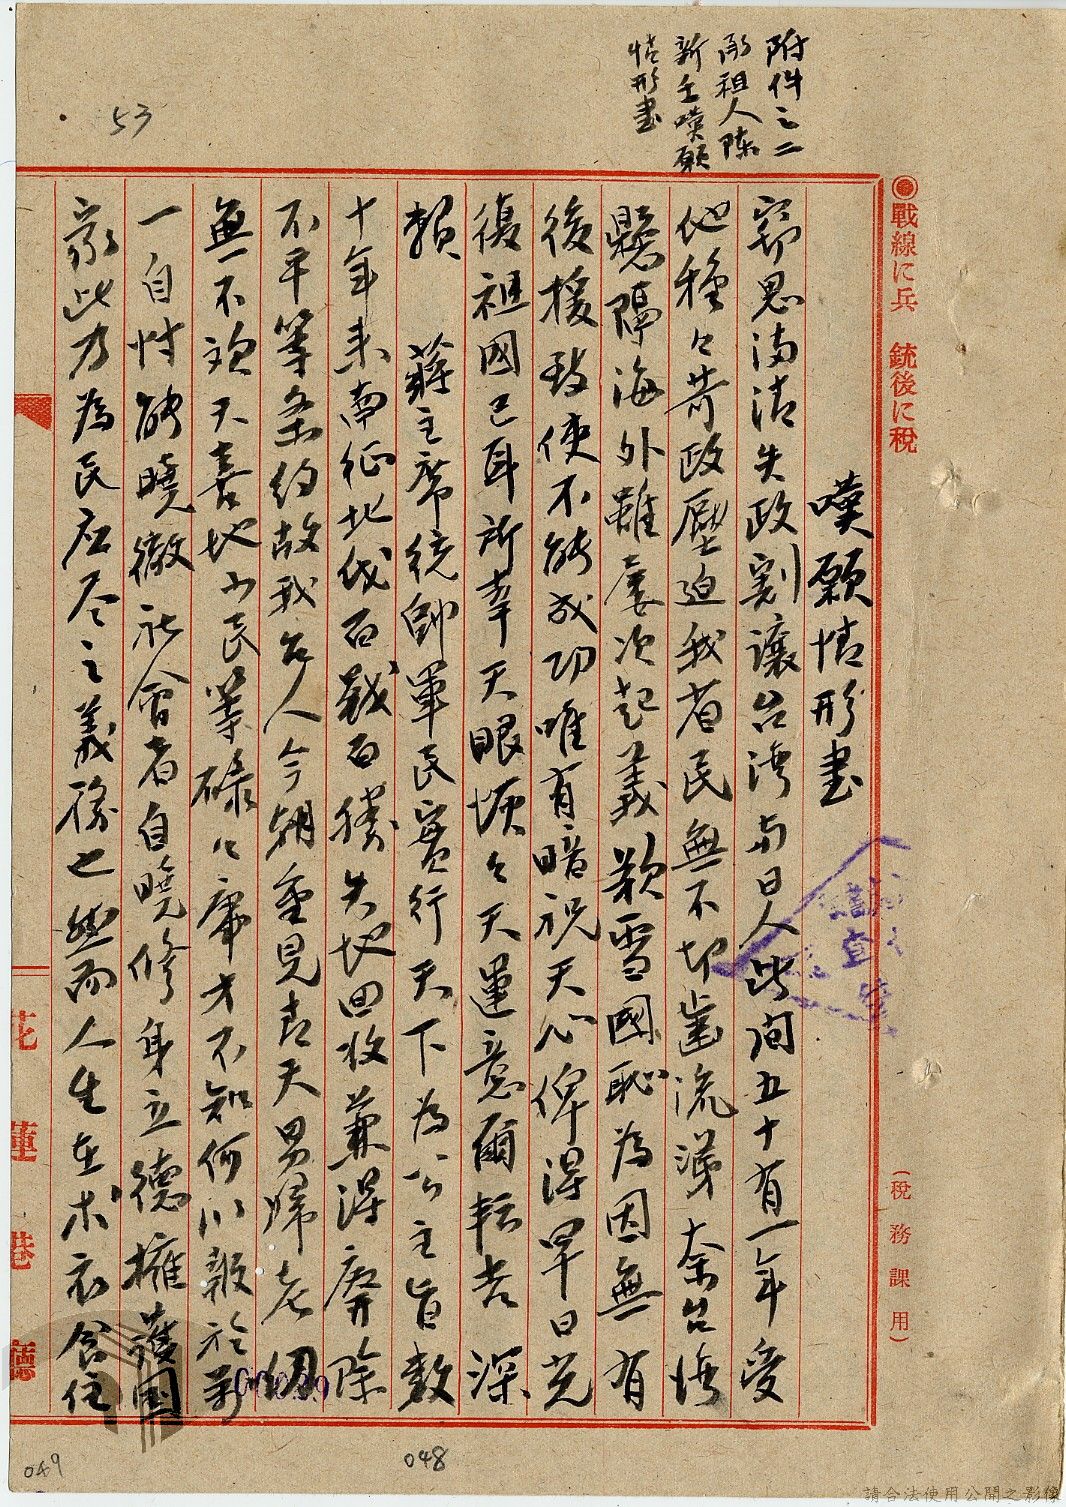 附件之二
承租人陳
新壬嘆願
情形書
53
◉戰線に兵　銃後に稅
（稅務課用）
嘆願情形書
竊思滿清失政割讓台灣與日人此間五十有一年受
他種々苛政壓迫我省民無不切齒流涕奈台灣
懸隔海外雖屢次起義欲雪國恥為因無有
後援致使不能成功唯有暗祝天心俾得早日光
復祖國已耳所幸天眼恢々天運意爾轉者深
賴　蔣主席統帥軍民實行天下為公主旨數
十年來南征北伐百戰百勝失地回收兼得廢除
不平等条約故我台人今朝重見青天男婦老幼
無不歡天喜地小民等碌々庸才不知何以報於萬
一自忖能曉徹社會者自曉修身立德擁護國
家此乃為民应尽之義務也然而人生在求衣食住
花蓮港廳
048
049
請合法使用公開之影像